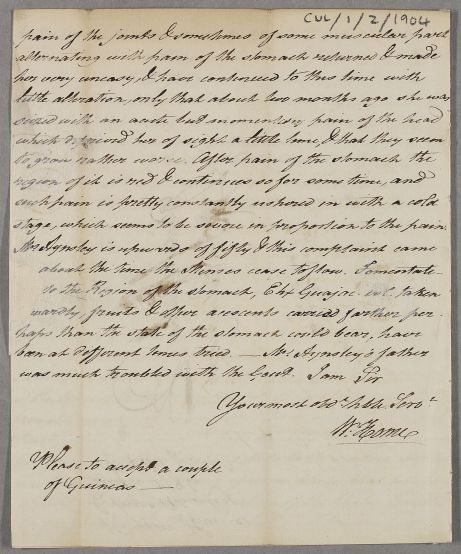 CUL/1/2/1904
pain of the joints & sometimes of some muscular part
alternating with pain of the stomach returned & made
her very uneasy, & have continued to this time with
little alteration, only that about two months ago she was
seized with an acute but momentary pain of the head
which deprived her of sight a little time, & that they seem
to grow rather worse. After pain of the stomach the
region of it is red & continues so for some time, and
such pain is pretty constantly ushered in with a cold
stage, which seems to be severe in proportion to the pain.
Mrs Aynsley is upwards of fifty & this complaint came
about the time the Menses cease to flow. Fomentate-
to the Region of the stomach, Elix Guajac. vol. taken
wardly, fruits & other acescents carried farther per-
haps than the state of the stomach could bear, have
been at different times tried. — Mrs Aynsley's father
was much troubled with the Gout. I am Sir
Your most obdt. hble. Servt.
Wm. Horne
Please to accept a couple
of Guineas —